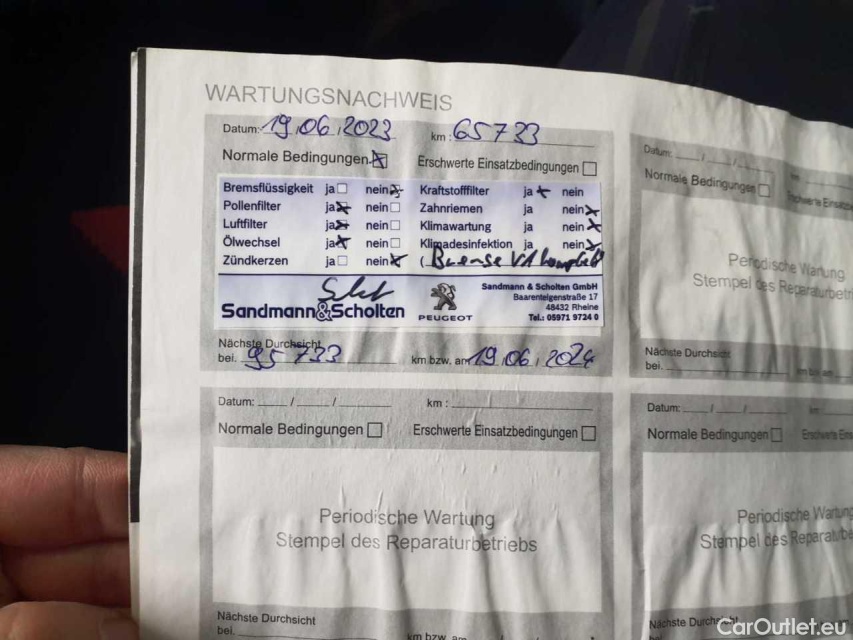 WARTUNGSNACHWEIS
Datum: 19.06.2023 km: 65733
Normale Bedingungen Erschwerte Einsatzbedingungen
Bremsflüssigkeit ja nein Kraftstofffilter ja nein
Pollenfilter ja nein Zahnriemen ja nein
Luftfilter ja nein Klimawartung ja nein
Ölwechsel ja nein Klimadesinfektion ja nein
Zündkerzen ja nein (Bremse VA komplett
Sandmann&Scholten
PEUGEOT
Sandmann & Scholten GmbH
Baarentelgenstraße 17
48432 Rheine
Tel.: 05971 9724 0
Nächste Durchsicht
bei. 95733 km bzw. am 19.06.2024
Datum: / /
Normale Bedingungen
Periodische Wartung
Stempel des
Nächste Durchsicht
bei. km bzw. am
Datum: / / km :
Normale Bedingungen Erschwerte Einsatzbedingungen
Periodische Wartung
Stempel des Reparaturbetriebs
Nächste Durchsicht
bei. km bzw. am
Datum: / / km
Normale Bedingungen
Periodische Wartung
Stempel des
Nächste Durchsicht
bei.
CarOutlet.eu